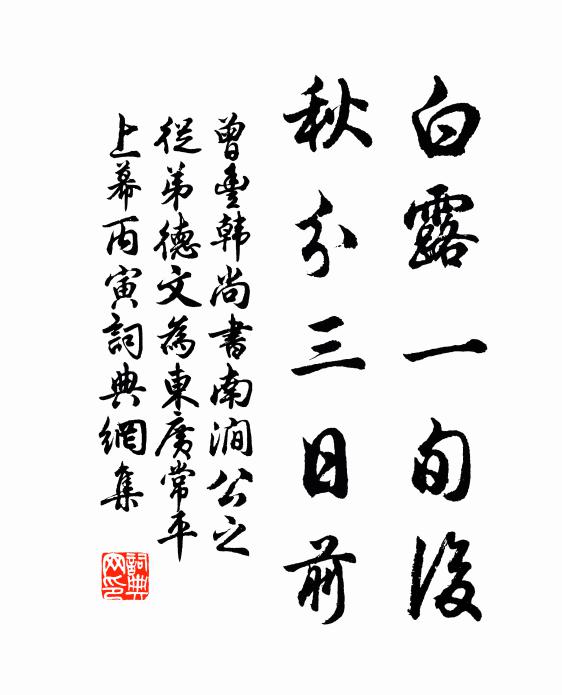 白露一旬後
秋分三日前
曾豐韩尚書南澗公之
從弟德文為東廣常平
上幕丙寅詞典網集
詞典
网印